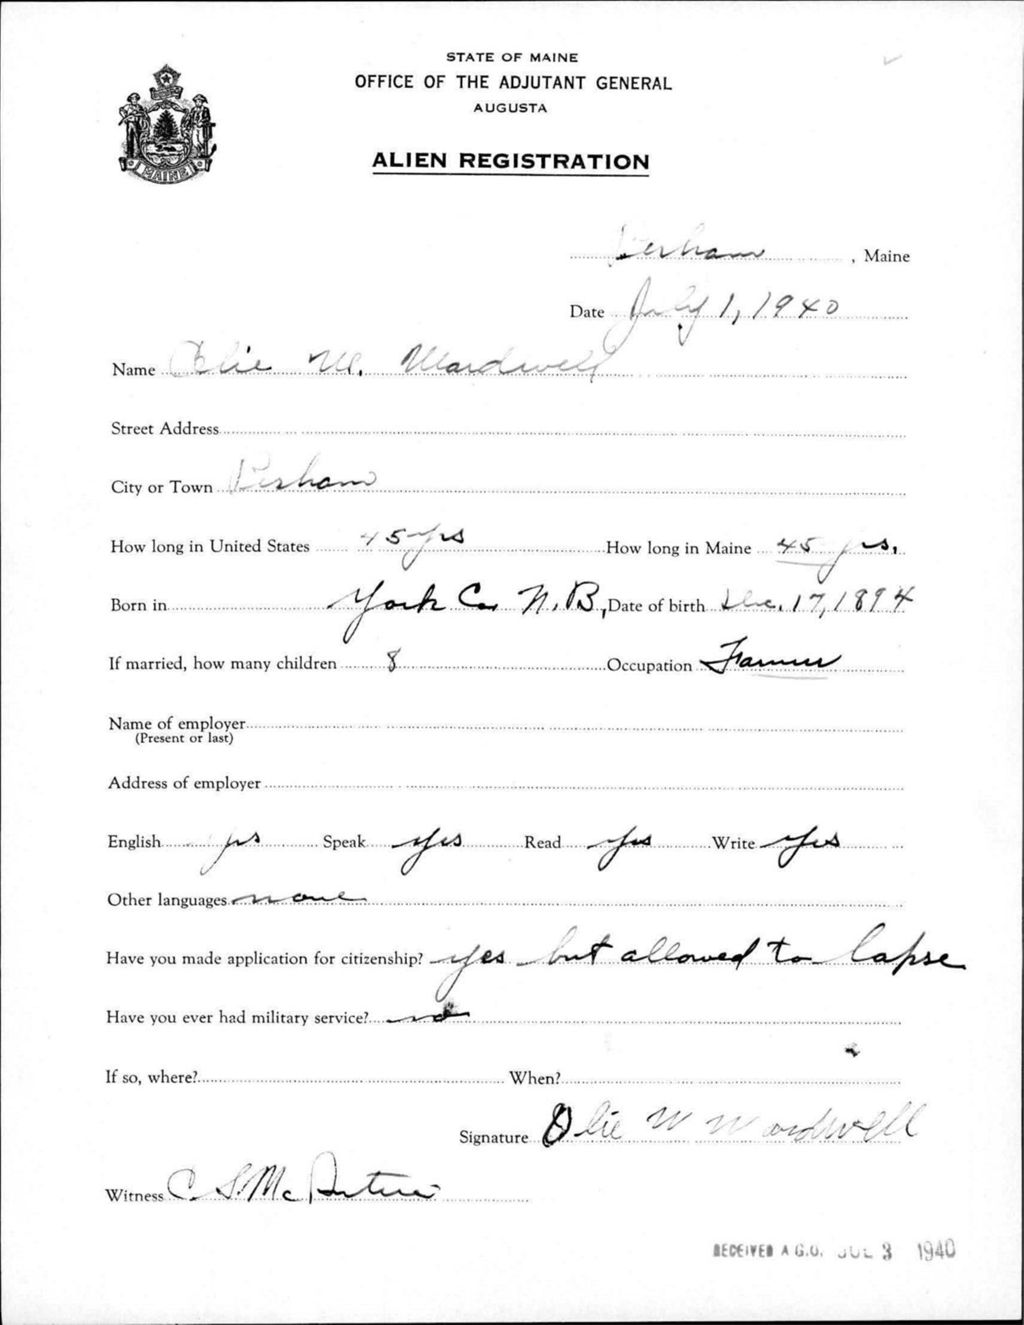 STATE OF MAINE
OFFICE OF THE ADJUTANT GENERAL
AUGUSTA
ALIEN REGISTRATION
MAINE
Perham, Maine
Date July 1, 1940
Name Olie W. Wardwell
Street Address
City or Town Perham
How long in United States 45 yrs How long in Maine 45 yrs.
Born in York Co. N.B, Date of birth Dec. 17, 1894
If married, how many children 8 Occupation Farmer
Name of employer
(Present or last)
Address of employer
English yes Speak yes Read yes Write yes
Other languages none
Have you made application for citizenship? yes but allowed to lapse
Have you ever had military service? no
If so, where? When?
Signature Olie W Wardwell
Witness C. S. Mc
RECEIVED A.G.O. JUL 3 1940